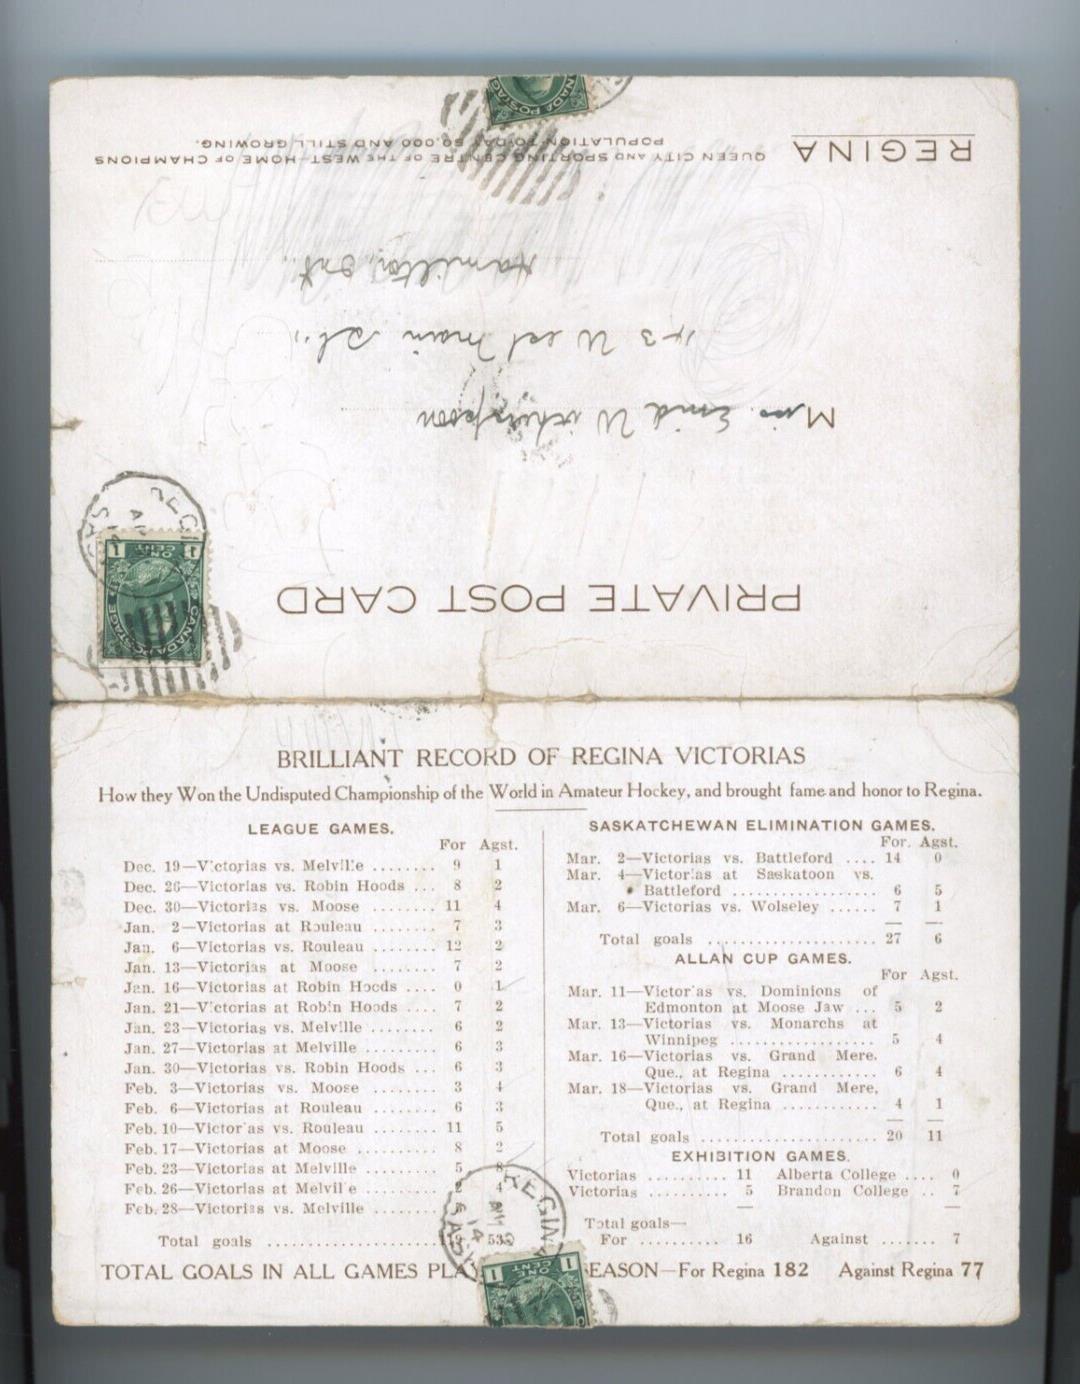 REGINA
QUEEN CITY AND SPORTING CENTRE OF THE WEST—HOME OF CHAMPIONS
POPULATION TO-DAY 50,000 AND STILL GROWING.
CANADA POSTAGE
Hamilton, Ont.
West Main St.,
Miss. Enid Witherspoon
PRIVATE POST CARD
CANADA POSTAGE
1 ONE CENT 1
BRILLIANT RECORD OF REGINA VICTORIAS
How they Won the Undisputed Championship of the World in Amateur Hockey, and brought fame and honor to Regina.
LEAGUE GAMES.
For Agst.
Dec. 19—Victorias vs. Melville ........ 9 1
Dec. 26—Victorias vs. Robin Hoods ... 8 2
Dec. 30—Victorias vs. Moose ........ 11 4
Jan. 2—Victorias at Rouleau ........ 7 3
Jan. 6—Victorias vs. Rouleau ........ 12 2
Jan. 13—Victorias at Moose ........ 7 2
Jan. 16—Victorias at Robin Hoods .... 0 1
Jan. 21—Victorias at Robin Hoods .... 7 2
Jan. 23—Victorias vs. Melville ........ 6 2
Jan. 27—Victorias at Melville ......... 6 3
Jan. 30—Victorias vs. Robin Hoods ... 6 3
Feb. 3—Victorias vs. Moose ........ 3 4
Feb. 6—Victorias at Rouleau ........ 6 3
Feb. 10—Victorias vs. Rouleau ........ 11 5
Feb. 17—Victorias at Moose ........ 8 2
Feb. 23—Victorias at Melville ........ 5 8
Feb. 26—Victorias at Melville ........ 4
Feb. 28—Victorias vs. Melville ........
Total goals ...................... 53
SASKATCHEWAN ELIMINATION GAMES.
For. Agst.
Mar. 2—Victorias vs. Battleford .... 14 0
Mar. 4—Victorias at Saskatoon vs.
Battleford .................. 6 5
Mar. 6—Victorias vs. Wolseley ...... 7 1
Total goals ..................... 27 6
ALLAN CUP GAMES.
For Agst.
Mar. 11—Victorias vs. Dominions of
Edmonton at Moose Jaw ... 5 2
Mar. 13—Victorias vs. Monarchs at
Winnipeg .................. 5 4
Mar. 16—Victorias vs. Grand Mere.
Que., at Regina ............ 6 4
Mar. 18—Victorias vs. Grand Mere,
Que., at Regina ............ 4 1
Total goals ...................... 20 11
EXHIBITION GAMES.
Victorias .......... 11 Alberta College .... 0
Victorias .......... 5 Brandon College .. 7
Total goals—
For .......... 16 Against ....... 7
REGINA
14
TOTAL GOALS IN ALL GAMES SEASON—For Regina 182 Against Regina 77
1 ONE CENT 1